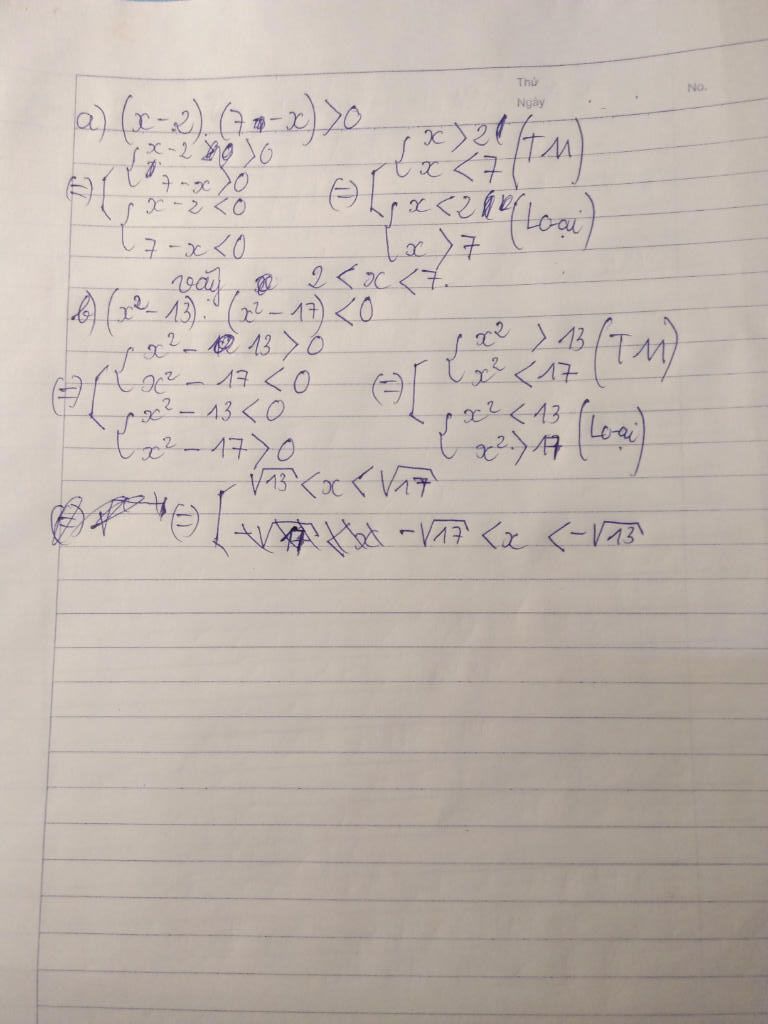 Thứ
Ngày
No.
a) (x-2).(7-x)>0
(=) [ { x-2>0
7-x>0
{ x-2<0
7-x<0
(=) [ { x>2
x<7 (TM)
{ x<2
x>7 (Loại)
vậy 2<x<7.
b) (x²-13).(x²-17)<0
(=) [ { x²-13>0
x²-17<0
{ x²-13<0
x²-17>0
(=) [ { x²>13
x²<17 (TM)
{ x²<13
x²>17 (Loại)
(=) [ √13<x<√17
-√17<x<-√13